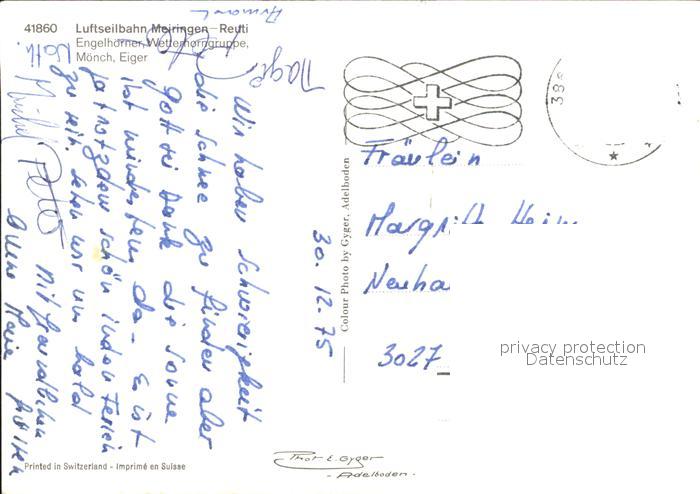 41860 Luftseilbahn Meiringen-Reuti
Engelhörner, Wetterhorngruppe,
Mönch, Eiger
30.12.75
Wir haben Schwierigkeit
die Schnee zu finden aber
Gott sei Dank die Sonne
ist mindestens da - Es ist
trotzdem schön in den Ferien
zu sein sehen wir uns bald
Mit freundlichen
Peter
Colour Photo by Gyger, Adelboden
Fräulein
Margrith
Neuha
3027
privacy protection
Datenschutz
Printed in Switzerland - Imprimé en Suisse
Phot E. Gyger
- Adelboden -